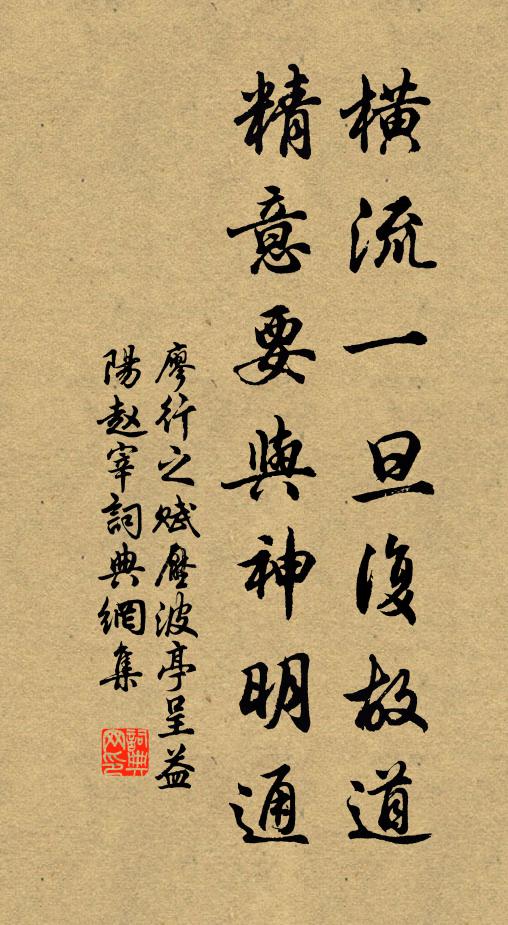 橫流一旦復故道
精意要與神明通
廖行之賦壓波亭呈益
陽趙宰詞典網集
詞典網印